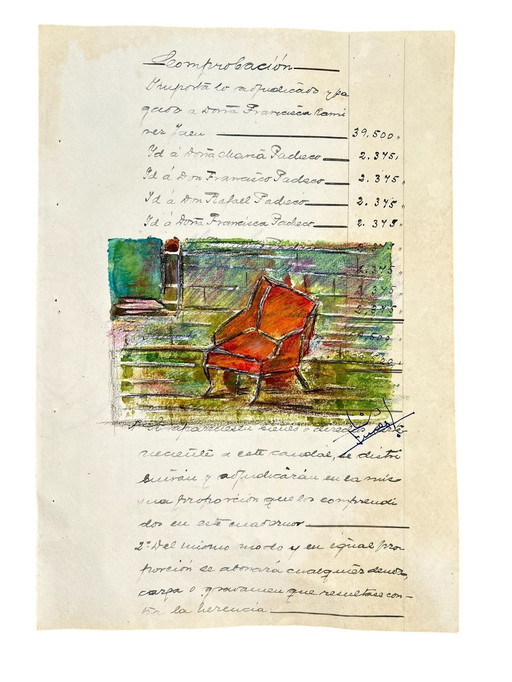 Comprobación
Importa lo adjudicado y pa
gado a Doña Francisca Rami
rez Jaen 39,500.
Id á Doña Maria Pacheco 2.375,
Id á Don Francisco Pacheco 2.375,
Id á Don Rafael Pacheco 2.375,
Id á Doña Francisca Pacheco 2.375,
2.375,
2.375,
este caudal, se distri
buirán y adjudicarán en la mis
ma proporción que los comprendi
dos en este cuaderno
2º Del mismo modo y en igual pro
porción se abonará cualquier deuda,
carga o gravamen que resultase con-
tra la herencia